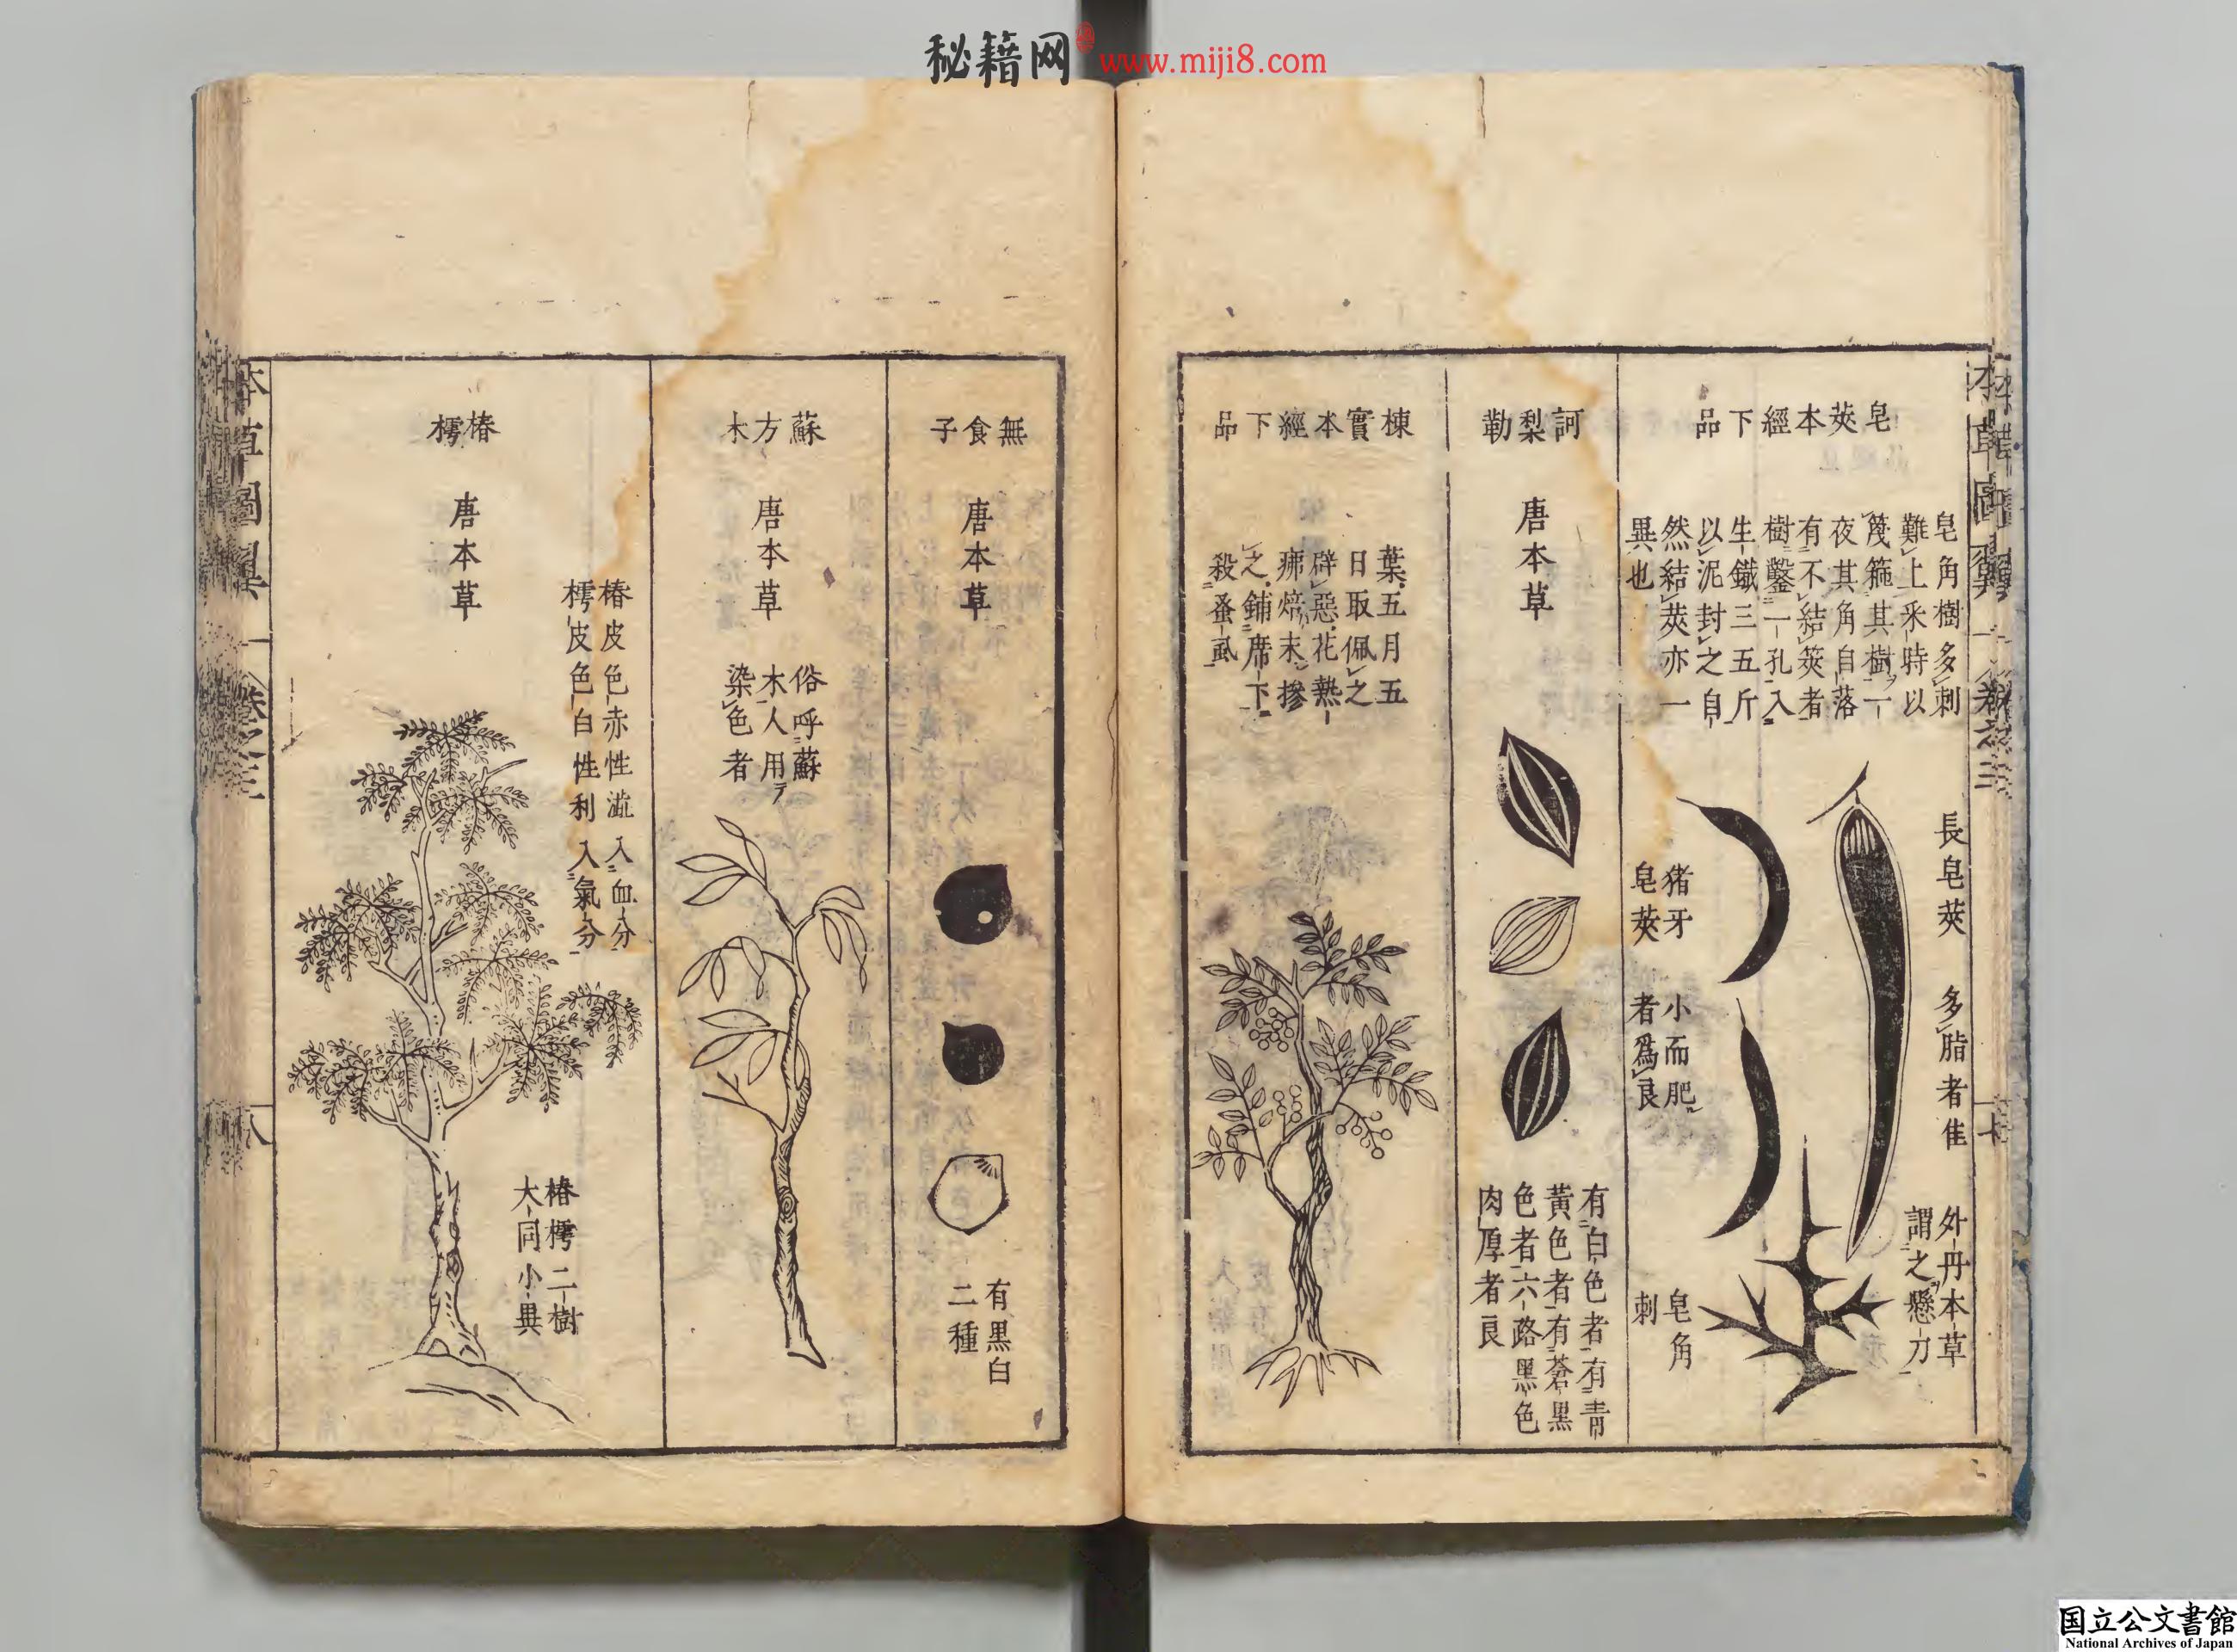 秘籍网 www.miji8.com
皂莢本經下品
皂角樹多刺
難上采時以
篾箍其樹一
夜其角自落
有不結莢者
樹鑿一孔入
生鐵三五斤
以泥封之自
然結莢亦一
異也
長皂莢
多脂者佳
外丹本草
謂之懸刀
猪牙
皂莢
小而肥
者爲良
皂角
刺
訶梨勒
唐本草
有白色者有青
黃色者有蒼黑
色者六路黑色
肉厚者良
楝實本經下品
葉五月五
日取佩之
辟惡花熱
疿焙末摻
之鋪席下
殺蚤虱
無食子
唐本草
有黒白
二種
蘇方木
唐本草
俗呼蘇
木人用
染色者
椿樗
唐本草
椿皮色赤性澁入血分
樗皮色白性利入氣分
椿樗二樹
大同小異
本草圖翼
卷之三
八
国立公文書館
National Archives of Japan